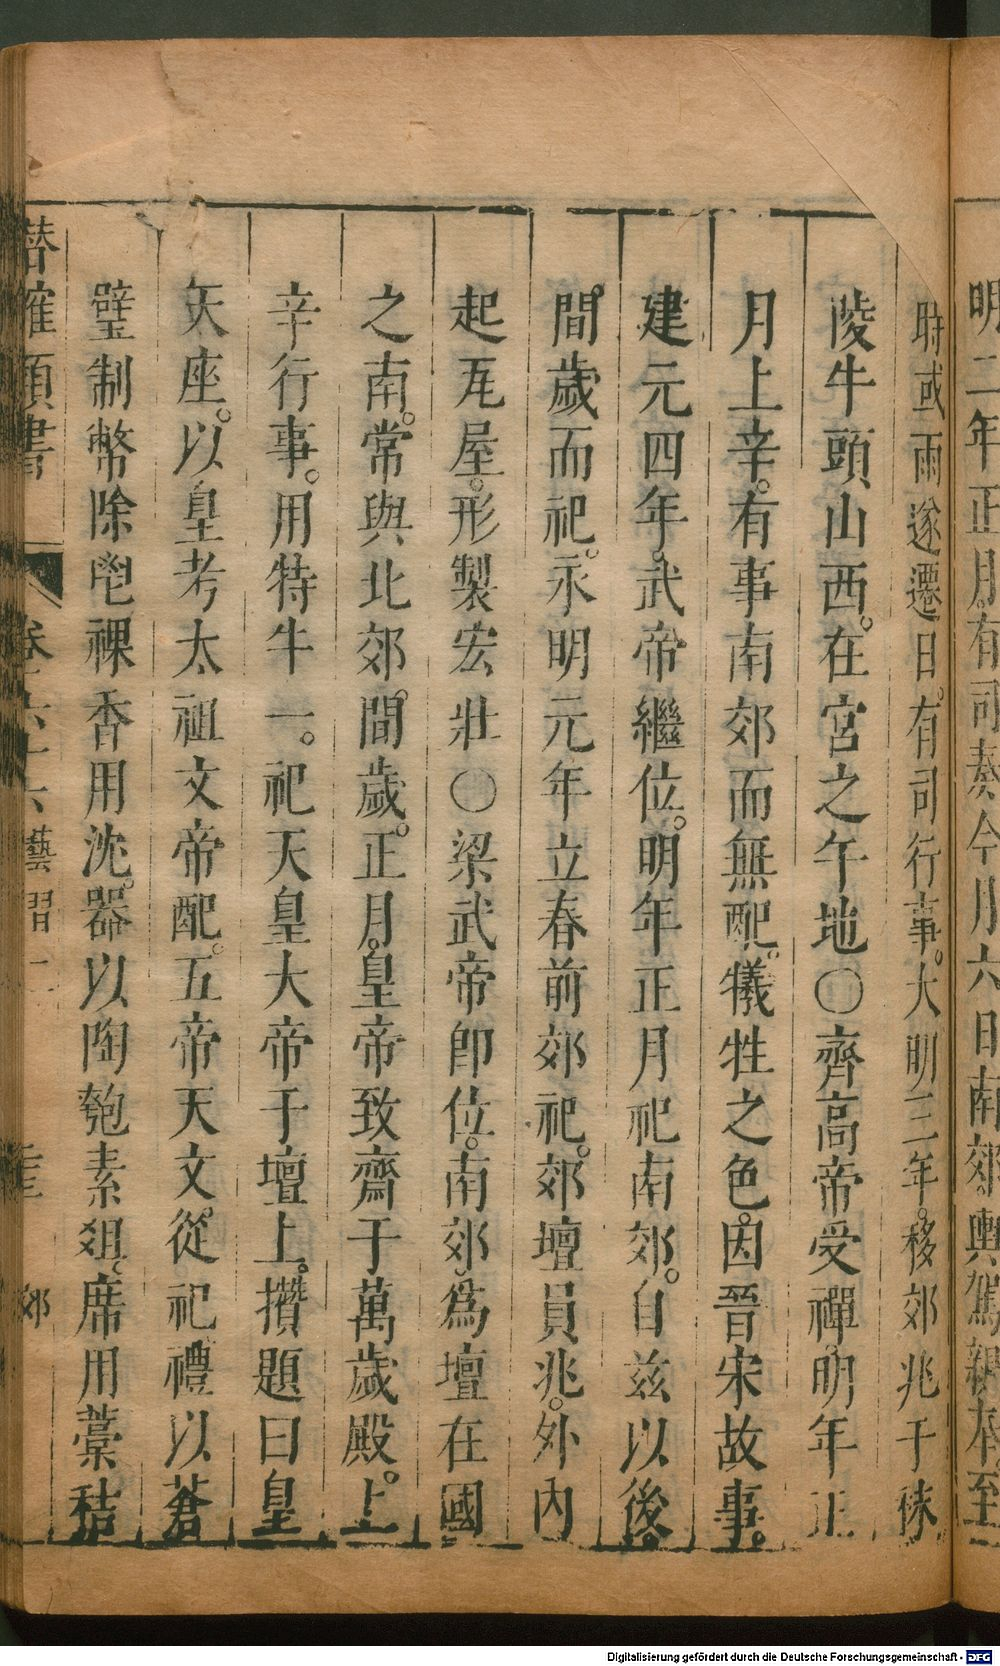 明二年正月有司奏今月六日南郊輿駕親本至
時或雨遂遷日有司行事大明三年移郊兆于秣
陵牛頭山西在宮之午地○齊高帝受禪明年正
月上辛有事南郊而無配犧牲之色因晉宋故事
建元四年武帝繼位明年正月祀南郊自茲以後
間歲而祀永明元年立春前郊祀郊壇員兆外內
起瓦屋形製宏壯○梁武帝卽位南郊爲壇在國
之南常與北郊間歲正月皇帝致齋于萬歲殿上
辛行事用特牛一祀天皇大帝于壇上攢題曰皇
天座以皇考太祖文帝配五帝天文從祀禮以蒼
璧制幣除鬯祼香用沈器以陶匏素俎席用藁秸
潛確類書
卷 藝習二 郊
Digitalisierung gefördert durch die Deutsche Forschungsgemeinschaft - DFG